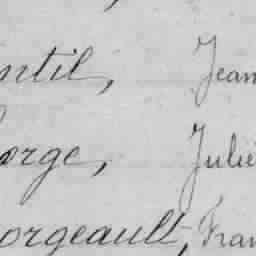 ntil, Jean
orge, Julie
orgeault, Fran